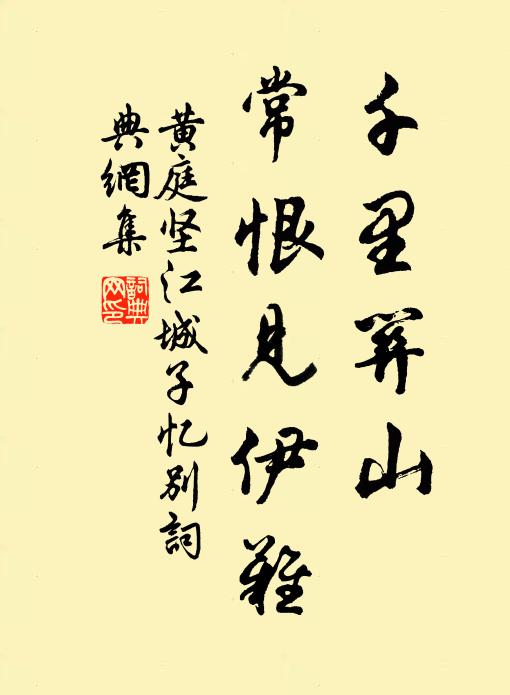 千里關山
常恨見伊難
黃庭坚江城子忆别詞
典網集
詞典
网印